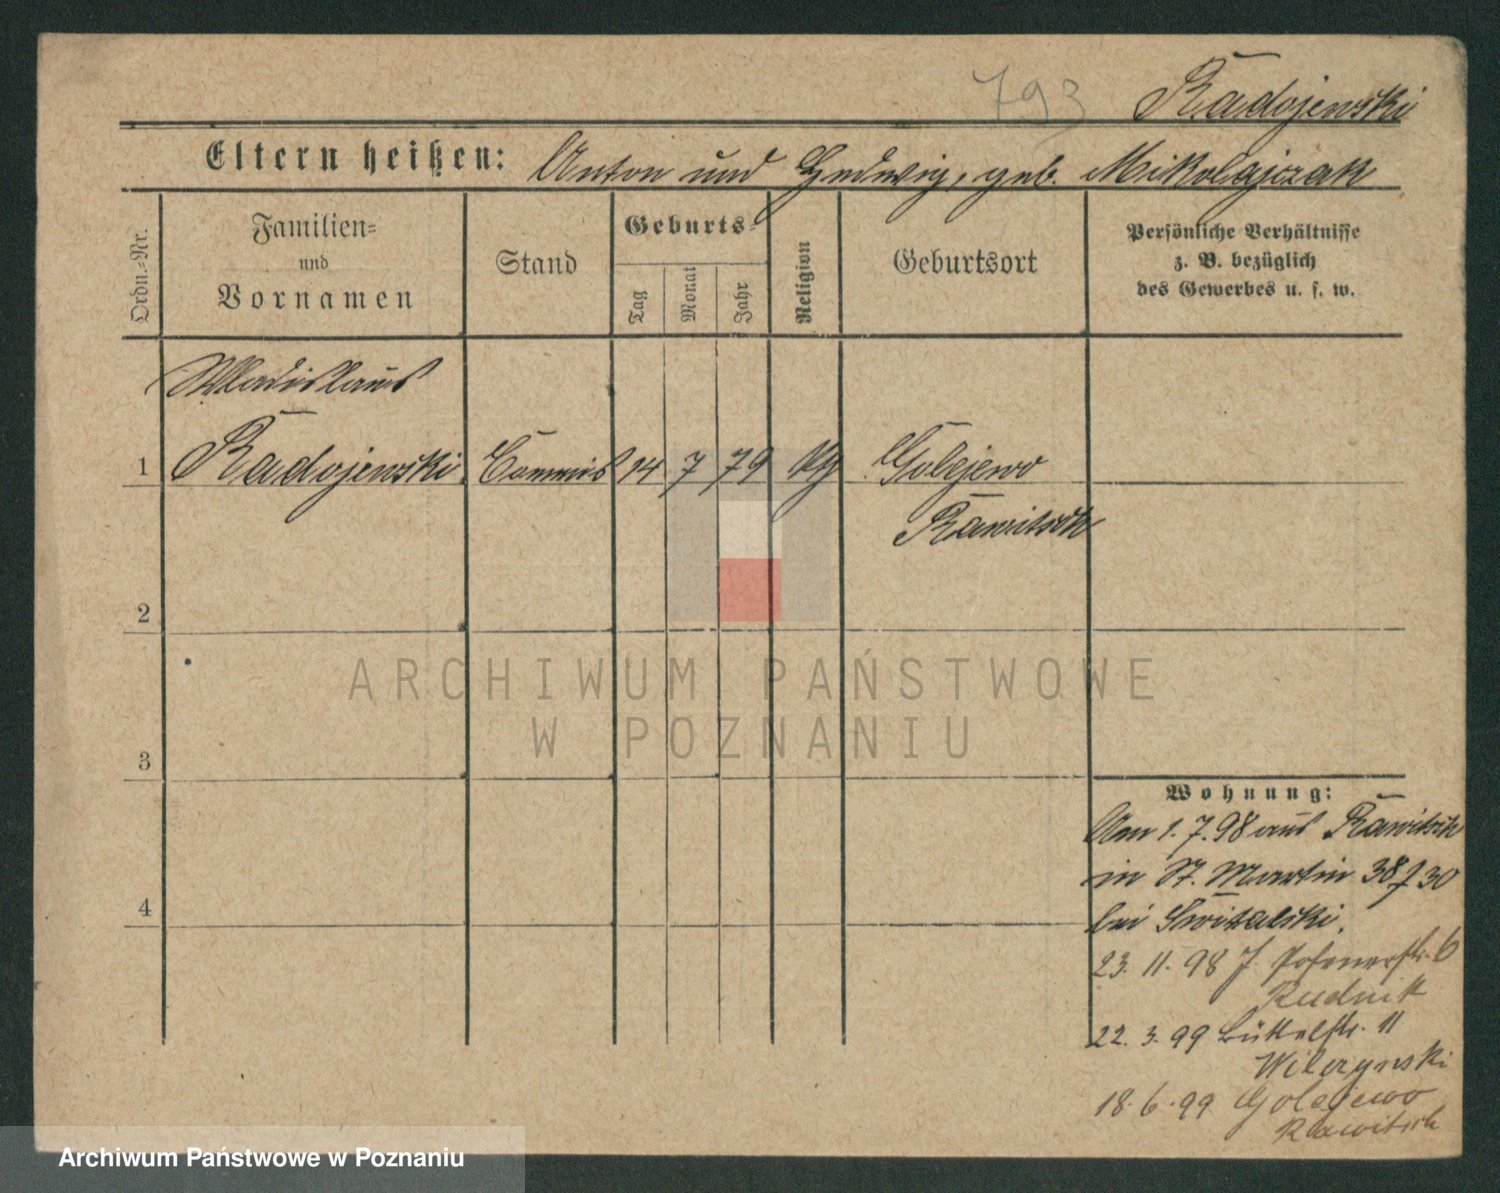 793 Radojewski
Eltern heißen: Anton und Hedwig, geb. Mikolajczak
Ordn.-Nr.
Familien-
und
Vornamen
Stand
Geburts-
Tag
Monat
Jahr
Religion
Geburtsort
Persönliche Verhältnisse
z. B. bezüglich
des Gewerbes u. s. w.
Wladislaus
1 Radojewski Commis 14 7 79 Golejewo
Rawitsch
2
3
4
Wohnung:
Am 1.7.98 aus Rawitsch
in St. Martin 38 30
bei Switalski.
23. 11. 98 J. Posenerstr. 6
Rudnik
22. 3. 99 Büttelstr. 11
Wilczynski
18. 6. 99 Golejewo
Rawitsch
ARCHIWUM PAŃSTWOWE
W POZNANIU
Archiwum Państwowe w Poznaniu